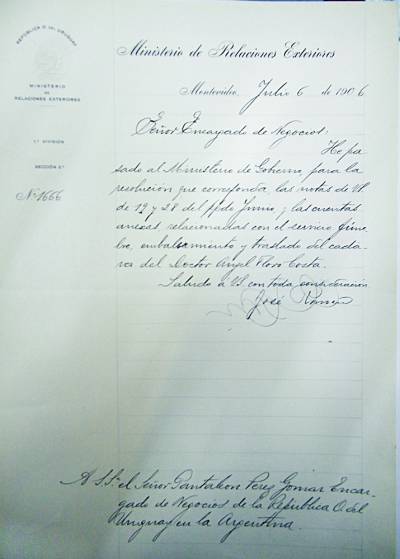 REPÚBLICA O. DEL URUGUAY
MINISTERIO
DE
RELACIONES EXTERIORES
1ª DIVISIÓN
SECCIÓN 2ª
Nº 1666
Ministerio de Relaciones Exteriores
Montevideo, Julio 6 de 1906
Señor Encargado de Negocios:
He pa-
sado al Ministerio de Gobierno, para la
resolución que corresponda, las notas de VS
de 19 y 28 del ppdo Junio, y las cuentas
anexas relacionadas con el servicio fúne-
bre, embalsamiento y traslado del cadá-
ver del Doctor Angel Floro Costa.
Saludo a VS con toda consideración
José Romeu
A S.S. el Señor Pantaleon Perez Gomar Encar-
gado de Negocios de la República O. del
Uruguay en la Argentina.